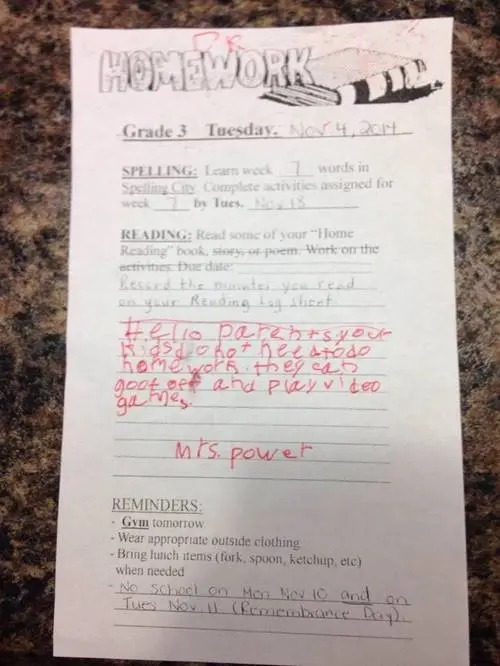 HOMEWORK
Grade 3 Tuesday. Nov 4, 2014
SPELLING: Learn week 7 words in
Spelling City. Complete activities assigned for
week 7 by Tues. Nov 18
READING: Read some of your "Home
Reading" book, story, or poem. Work on the
activities. Due date:
Record the minutes you read
on your Reading Log sheet.
Hello parents your
kids do not need to do
homework. they can
goof off and play video
games.
Mrs. power
REMINDERS:
- Gym tomorrow
- Wear appropriate outside clothing
- Bring lunch items (fork, spoon, ketchup, etc)
when needed
- No school on Mon Nov 10 and on
Tues Nov 11 (Remembrance Day).